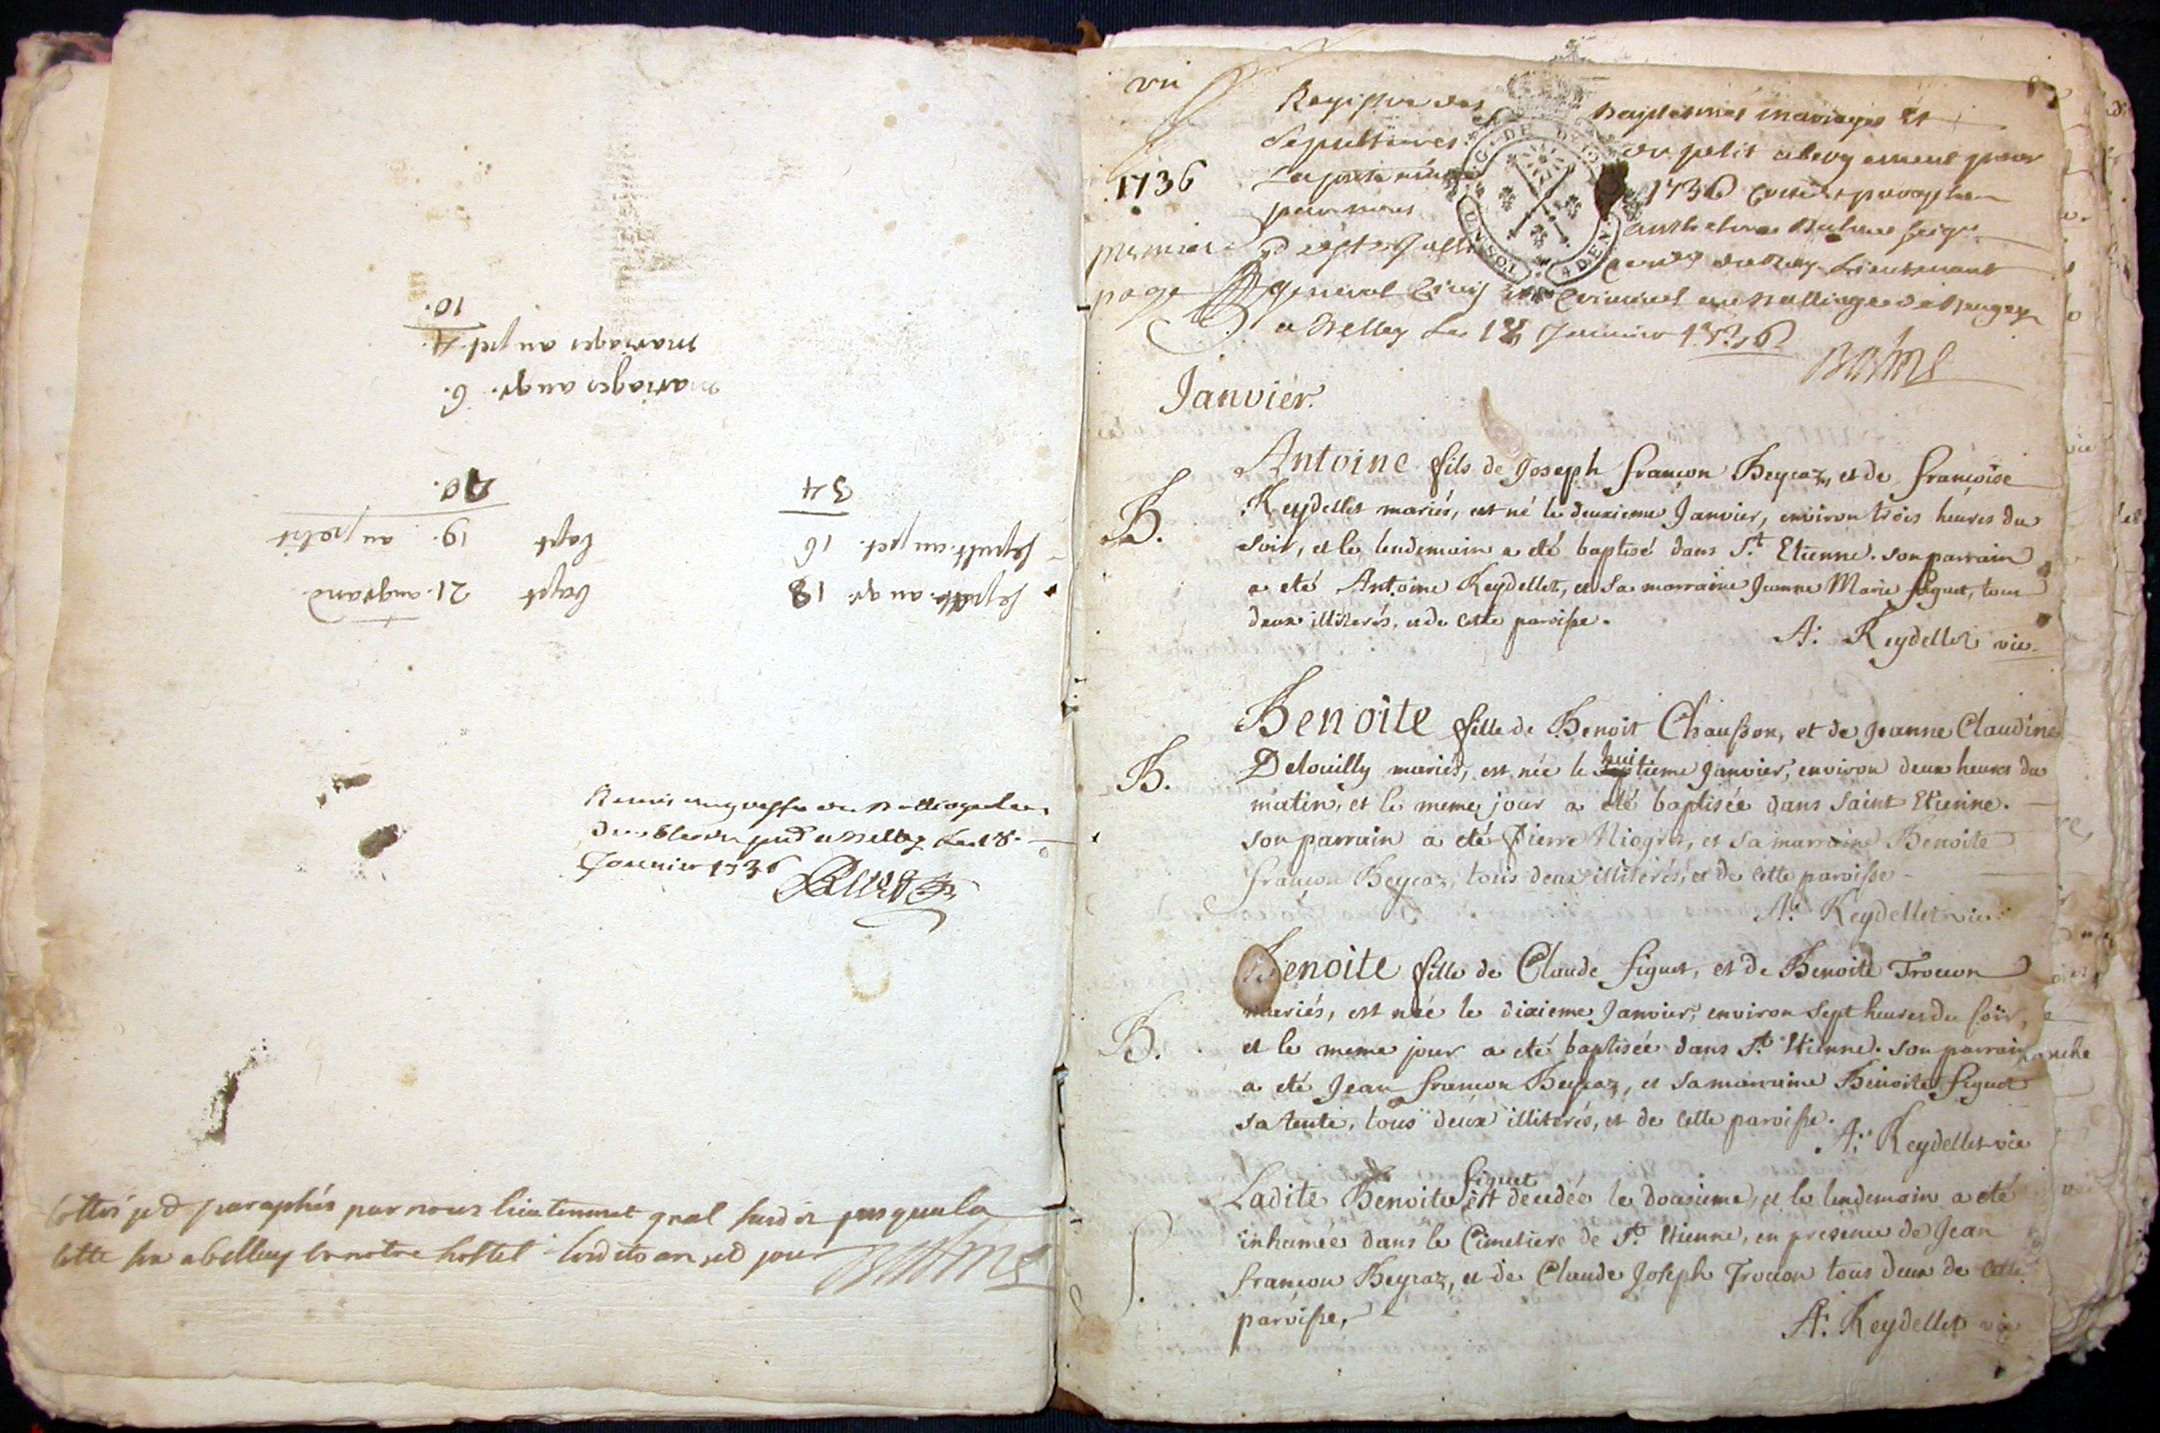 10.
mariages au pet. 4.
mariages au gr. 6.
40.
bapt 19. au petit
bapt 21. au grand
34
sepult. au pet. 16
sepult. au gr. 18
Remis au greffe du Balliage
Belley le 18.
Janvier 1736
cottés et paraphés par nous lieutenant gnal susdit jusqua la
cotte six a belley en notre hostel lesdits an et jour
Balme
1736
premiere
page
Registre des baptesmes mariages et
sepultures du petit abergement pour
La presente année 1736 Cotté et paraphé
par nous Anthelme Balme seigr
Lieutenant
general Civil et Criminel au Balliage de Beugey
a Belley le 18 Janvier 1736
Balme
Janvier.
B.
Antoine fils de Joseph françon Beycaz, et de françoise
Reydellet mariés, est né le deuxieme Janvier, environ trois heures du
soir, et le lendemain a eté baptisé dans St Etienne. son parrain
a eté Antoine Reydellet, et sa marraine Jeanne Marie figuet, tous
deux illiterés, et de cette paroisse.
A: Reydellet vic
B.
Benoite fille de Benoit Chausson, et de Jeanne Claudine
Delouilly mariés, est née le huitieme Janvier, environ deux heures du
matin, et le meme jour a eté baptisée dans saint Etienne.
son parrain a eté Pierre Niogret, et sa marraine Benoite
françon Beycaz, tous deux illiterés, et de cette paroisse
A: Reydellet vic
B.
Benoite fille de Claude figuet, et de Benoite Trocon
mariés, est née le dixieme Janvier, environ sept heures du soir,
et le meme jour a eté baptisée dans St Etienne. son parrain
a eté Jean françon Beycaz, et sa marraine Benoite figuet
sa tente, tous deux illiterés, et de cette paroisse.
A: Reydellet vic
S.
Ladite Benoite figuet est decedée le douzieme, et le lendemain a eté
inhumée dans le Cimetiere de St Etienne, en presence de Jean
françon Beycaz, et de Claude Joseph Trocon tous deux de cette
paroisse,
A: Reydellet vic